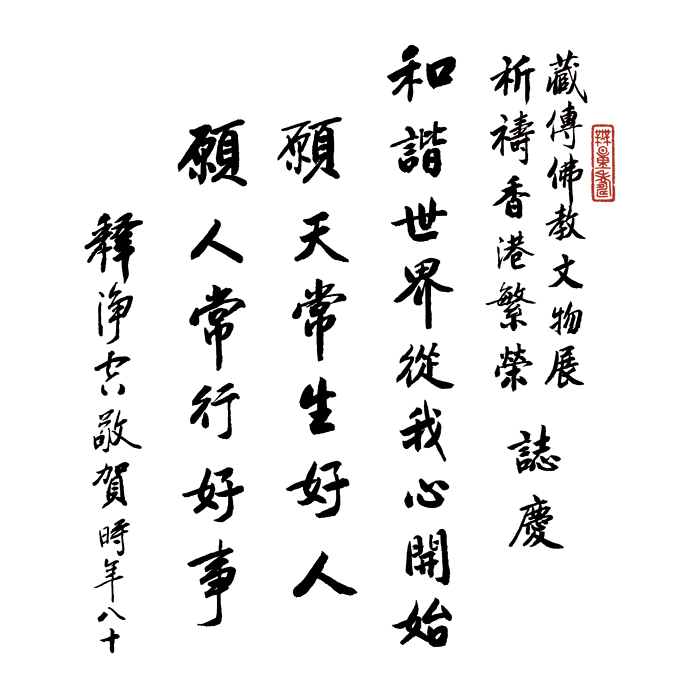 無量壽
藏傳佛教文物展
祈禱香港繁榮
誌慶
和諧世界從我心開始
願天常生好人
願人常行好事
釋淨空敬賀時年八十